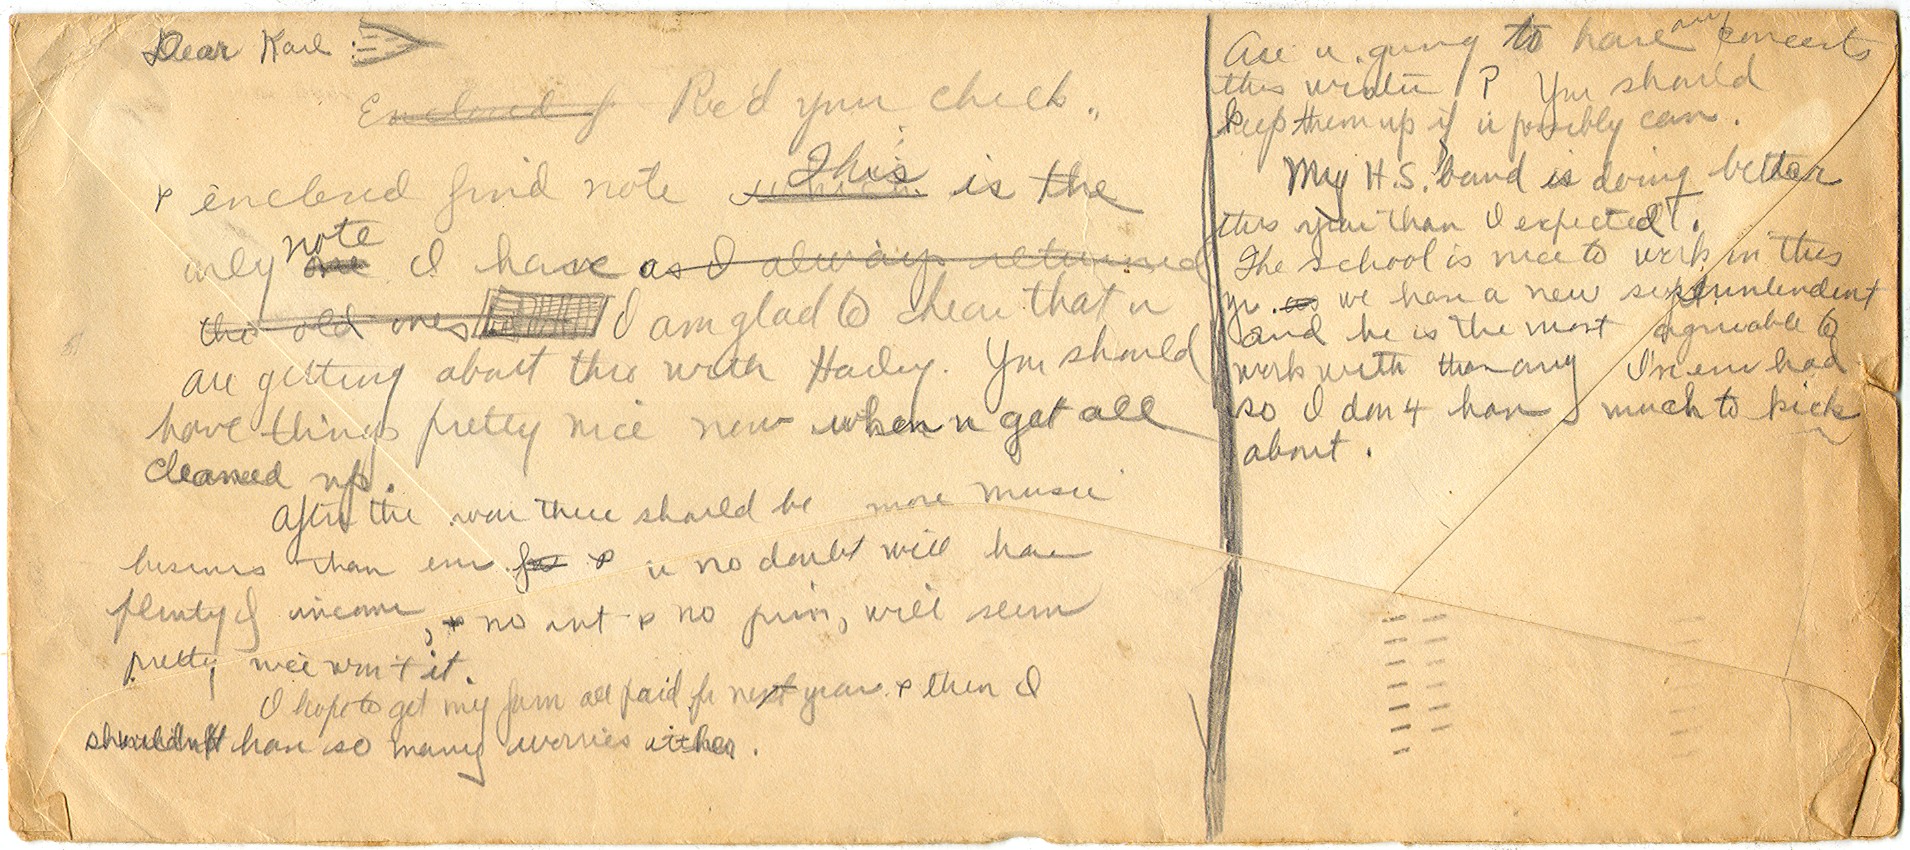 Dear Karl :
Enclosed f Rec'd your check.
& enclosed find note which This is the
only one note I have as I always returned
the old ones I am glad to hear that u
are getting about thru with Harley. You should
have things pretty nice now when u get all
cleaned up.
After the war there should be more music
business than ever for & u no doubt will have
plenty of income, & no int & no prin, will seem
pretty nice won't it.
I hope to get my farm all paid for next year & then I
shouldn't have so many worries either.
Are u going to have any concerts
this winter ? You should
keep them up if u possibly can.
My H.S. band is doing better
this year than I expected.
The school is nice to work in this
yr. as we have a new superintendent
and he is the most agreeable to
work with than any I've ever had
so I don't have much to kick
about.